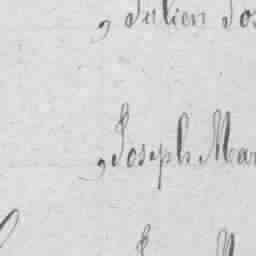 , Julien Jos
, Joseph Mar